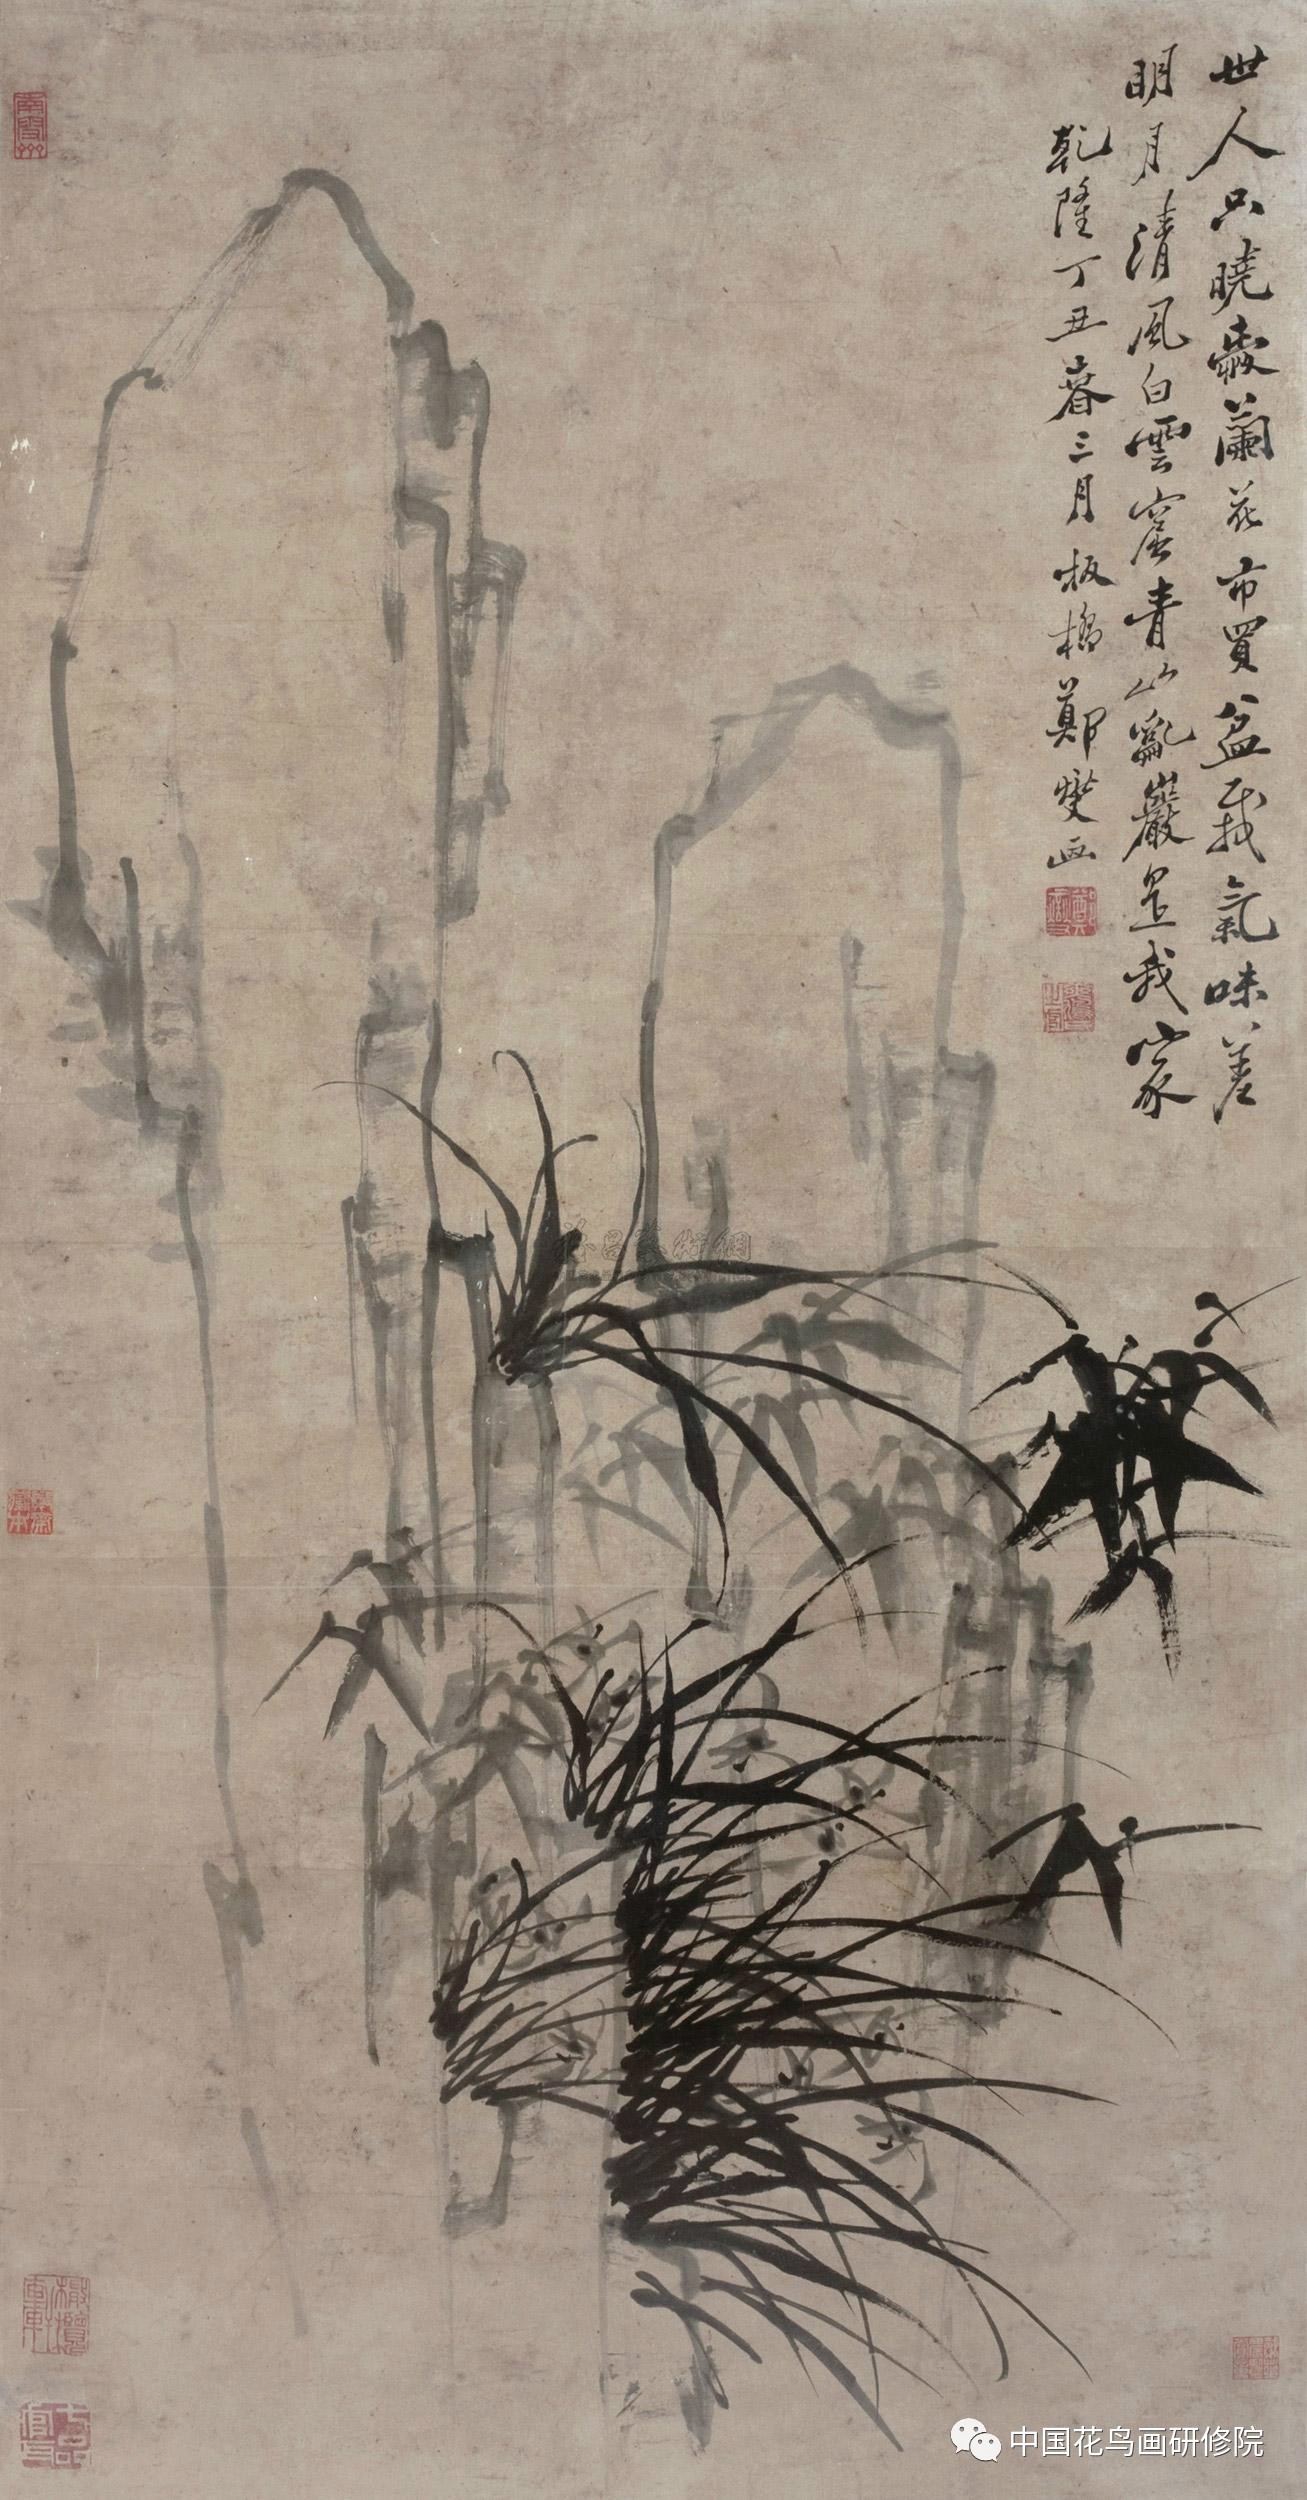 世人只曉愛蘭花市買盆栽氣味差
明月清風白雲窟青山亂巖是我家
乾隆丁丑暮三月板橋鄭燮畫
中国花鸟画研修院